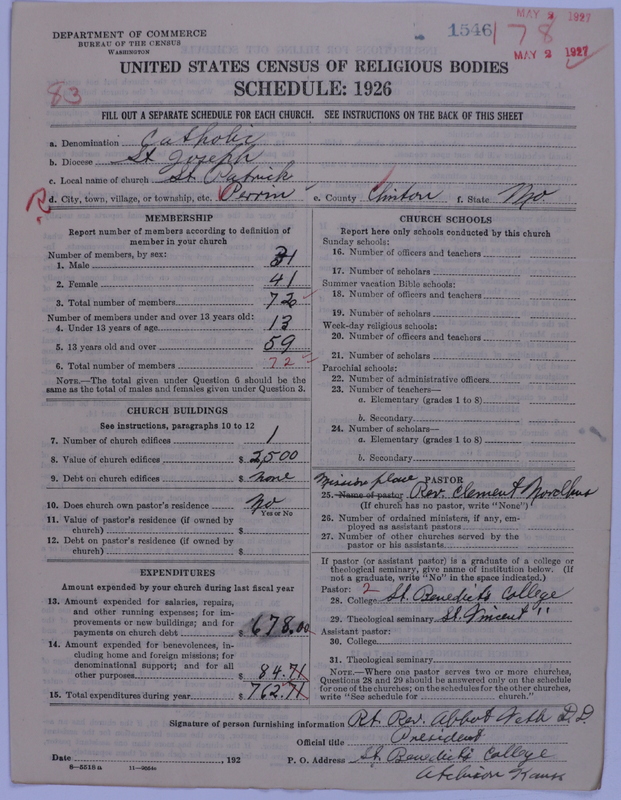 DEPARTMENT OF COMMERCE
BUREAU OF THE CENSUS
WASHINGTON
1546 178
MAY 2 1927
MAY 2 1927
83
UNITED STATES CENSUS OF RELIGIOUS BODIES
SCHEDULE: 1926
FILL OUT A SEPARATE SCHEDULE FOR EACH CHURCH. SEE INSTRUCTIONS ON THE BACK OF THIS SHEET
a. Denomination Catholic
b. Diocese St. Joseph
c. Local name of church St. Patrick
R d. City, town, village, or township, etc. Perrin e. County Clinton f. State Mo.
MEMBERSHIP
Report number of members according to definition of
member in your church
Number of members, by sex:
1. Male 31
2. Female 41
3. Total number of members 72
Number of members under and over 13 years old:
4. Under 13 years of age 13
5. 13 years old and over 59
6. Total number of members 72
NOTE.—The total given under Question 6 should be the
same as the total of males and females given under Question 3.
CHURCH BUILDINGS
See instructions, paragraphs 10 to 12
7. Number of church edifices 1
8. Value of church edifices $ 2,500
9. Debt on church edifices $ none
10. Does church own pastor's residence No
Yes or No
11. Value of pastor's residence (if owned by
church) $
12. Debt on pastor's residence (if owned by
church) $
EXPENDITURES
Amount expended by your church during last fiscal year
13. Amount expended for salaries, repairs,
and other running expenses; for im-
provements or new buildings; and for
payments on church debt $ 678.00
14. Amount expended for benevolences, in-
cluding home and foreign missions; for
denominational support; and for all
other purposes $ 84.71
15. Total expenditures during year $ 762.71
CHURCH SCHOOLS
Report here only schools conducted by this church
Sunday schools:
16. Number of officers and teachers
17. Number of scholars
Summer vacation Bible schools:
18. Number of officers and teachers
19. Number of scholars
Week-day religious schools:
20. Number of officers and teachers
21. Number of scholars
Parochial schools:
22. Number of administrative officers
23. Number of teachers—
a. Elementary (grades 1 to 8)
b. Secondary
24. Number of scholars—
a. Elementary (grades 1 to 8)
b. Secondary
Mission place PASTOR
25. Name of pastor Rev. Clement
(If church has no pastor, write "None")
26. Number of ordained ministers, if any, em-
ployed as assistant pastors
27. Number of other churches served by the
pastor or his assistants
If pastor (or assistant pastor) is a graduate of a college or
theological seminary, give name of institution below. (If
not a graduate, write "No" in the space indicated.)
Pastor: 2
28. College St. Benedict's College
29. Theological seminary St. Vincent "
Assistant pastor:
30. College
31. Theological seminary
NOTE.—Where one pastor serves two or more churches,
Questions 28 and 29 should be answered only on the schedule
for one of the churches; on the schedules for the other churches,
write "See schedule for church."
Signature of person furnishing information Rt. Rev. Abbot Veth D.D
Official title President
Date , 192 P. O. Address St. Benedict's College
8—5518a 11—9664c Atchison Kans